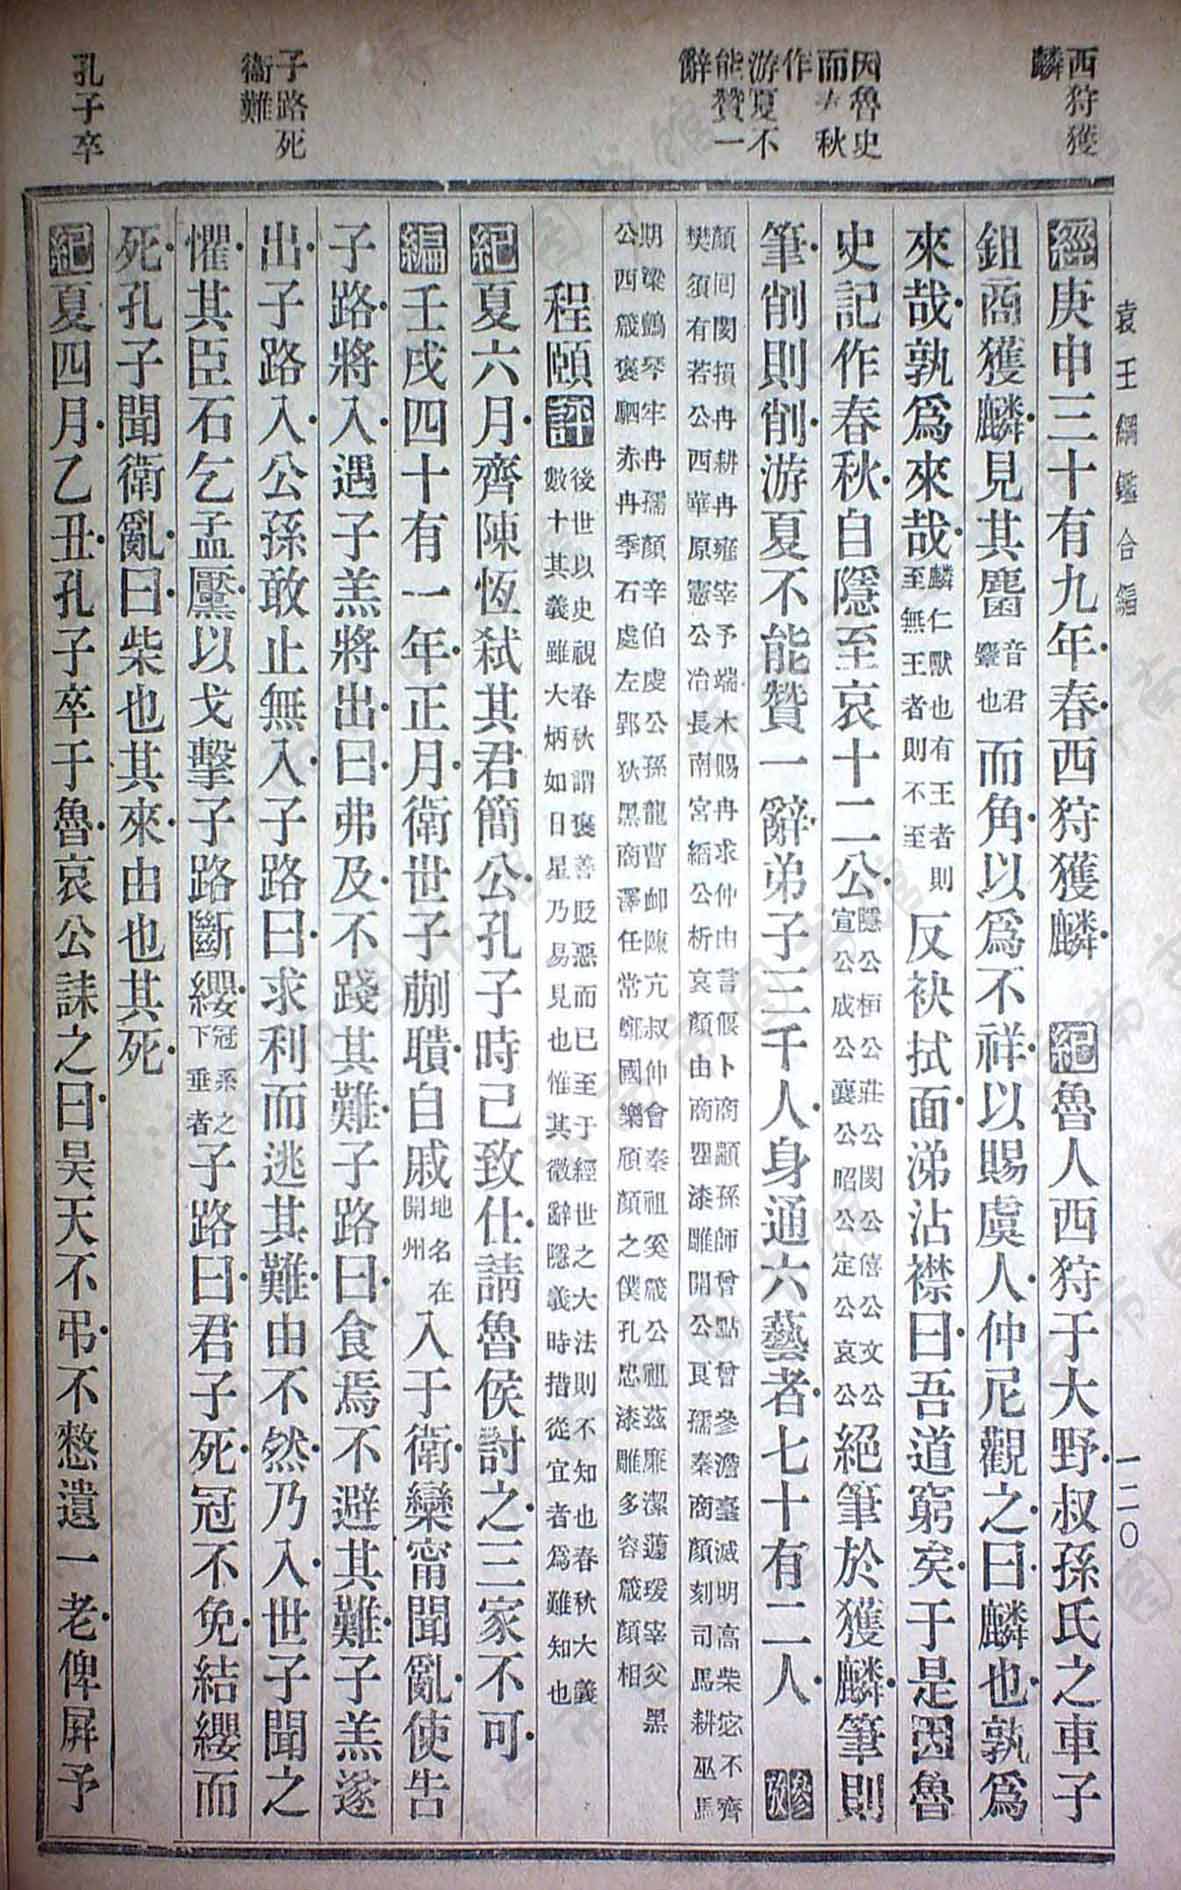 西狩獲
麟
因魯史
而春秋
作
游夏不
能贊一
辭
子路死
衞難
孔子卒
袁王綱鑑合編
一二〇
經庚申三十有九年春西狩獲麟　紀魯人西狩于大野叔孫氏之車子
鉏商獲麟見其麕音君麞也而角以爲不祥以賜虞人仲尼觀之曰麟也孰爲
來哉孰爲來哉麟仁獸也有王者則至無王者則不至反袂拭面涕沾襟曰吾道窮矣于是因魯
史記作春秋自隱至哀十二公隱公桓公莊公閔公僖公文公宣公成公襄公昭公定公哀公絕筆於獲麟筆則
筆削則削游夏不能贊一辭弟子三千人身通六藝者七十有二人　參攷
顏回閔損冉耕冉雍宰予端木賜冉求仲由言偃卜商顓孫師曾點曾參澹臺滅明高柴宓不齊
樊須有若公西華原憲公冶長南宮縚公析哀顏由商瞿漆雕開公良孺秦商顏刻司馬耕巫馬
期梁鱣琴牢冉孺顏辛伯虔公孫龍曹卹陳亢叔仲會秦祖奚箴公祖茲廉潔蘧瑗宰父黑
公西箴褒駟赤冉季石處左郢狄黑商澤任常鄭國樂頎顏之僕孔忠漆雕多容箴顏相
程頤評後世以史視春秋謂褒善貶惡而已至于經世之大法則不知也春秋大義
數十其義雖大炳如日星乃易見也惟其微辭隱義時措從宜者爲難知也
紀夏六月齊陳恆弒其君簡公孔子時己致仕請魯侯討之三家不可
編壬戌四十有一年正月衛世子蒯聵自戚地名在開州入于衛欒甯聞亂使告
子路將入遇子羔將出曰弗及不踐其難子路曰食焉不避其難子羔遂
出子路入公孫敢止無入子路曰求利而逃其難由不然乃入世子聞之
懼其臣石乞孟黶以戈擊子路斷纓冠系之下垂者子路曰君子死冠不免結纓而
死孔子聞衛亂曰柴也其來由也其死
紀夏四月乙丑孔子卒于魯哀公誄之曰昊天不弔不憖遺一老俾屛予